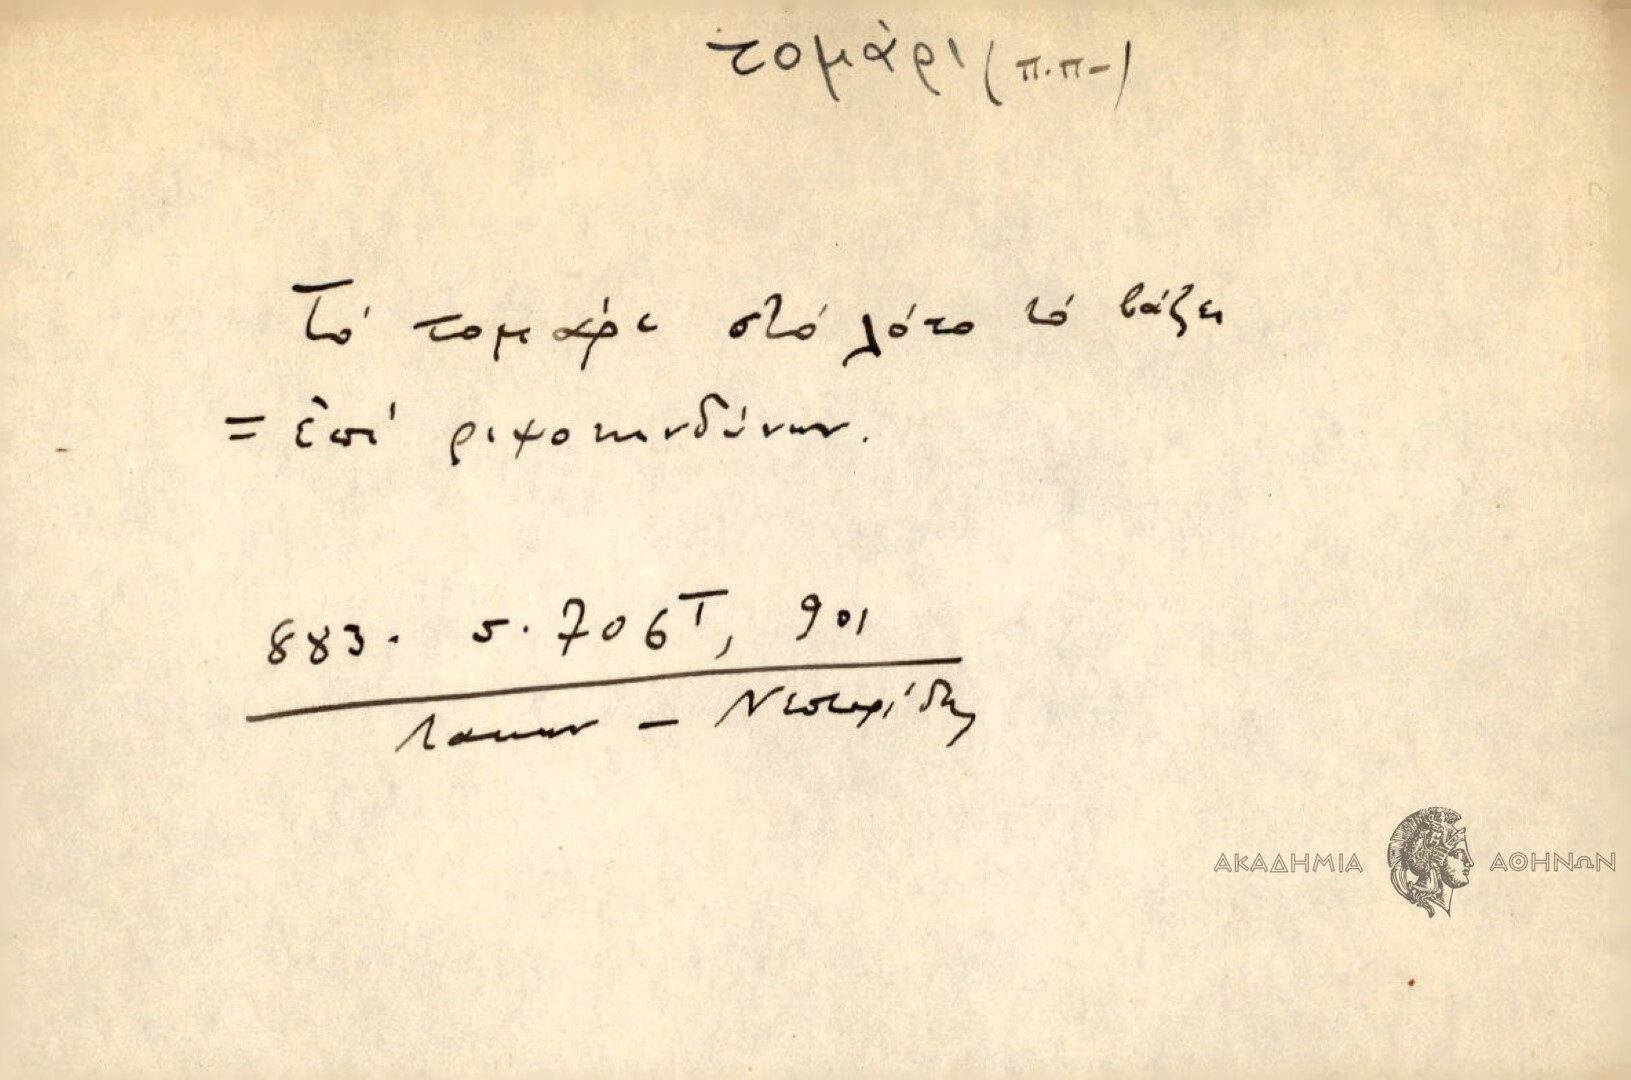 τομάρι (π.π-)
Τό τομάρι στό λότο τό βάζει
= ἐπί ριψοκινδύνων.
883. σ. 706Τ, 901
Λάκων – Νεστορίδης
ΑΚΑΔΗΜΙΑ ΑΘΗΝΩΝ